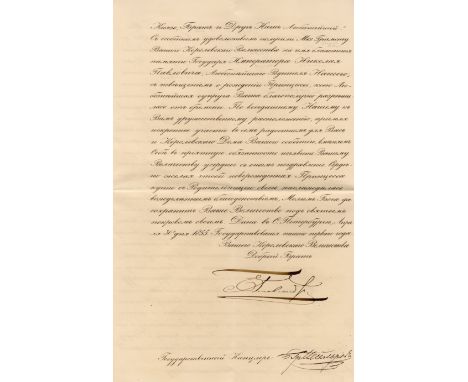 Князь, Братъ и Другъ Нашъ Любезнѣйшій!
Съ особымъ удовольствіемъ получили Мы Грамоту
Вашего Королевскаго Величества на имя блаженныя
памяти Государя Императора Николая
Павловича, Любезнѣйшаго Родителя Нашего,
съ извѣщеніемъ о рожденіи Принцессы, коею Лю-
безнѣйшая супруга Ваша благополучно разрѣши-
лась отъ бремени. По всегдашнему Нашему къ
Вамъ дружественному расположенію, пріемля
искреннее участіе въ семъ радостномъ для Васъ
и Королевскаго Дома Вашего событіи, вмѣняемъ
Себѣ въ пріятную обязанность изъявить Вашему
Величеству усердное съ онымъ поздравленіе
новорожденная Принцесса
купно съ Родительницею своею наслаждалась
вожделѣннымъ благоденствіемъ, Молимъ Бога да
сохранитъ Ваше Величество подъ святымъ
покровомъ своимъ. Дана въ С. Петербургѣ,
30 дня 1855 Государствованія Нашего перваго года.
Вашего Королевскаго Величества
Добрый Братъ
Государственный Канцлеръ